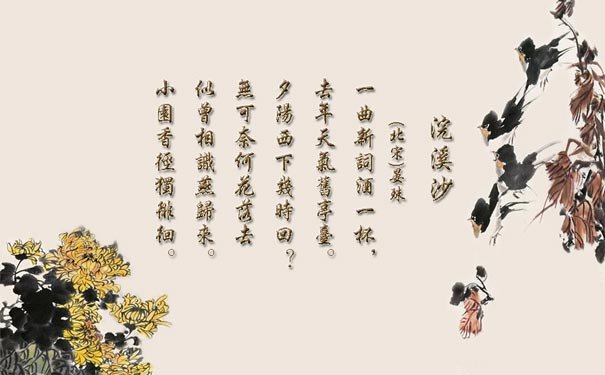 浣溪沙
(北宋)晏殊
一曲新詞酒一杯，
去年天氣舊亭臺。
夕陽西下幾時回？
無可奈何花落去
似曾相識燕歸來。
小園香徑獨徘徊。